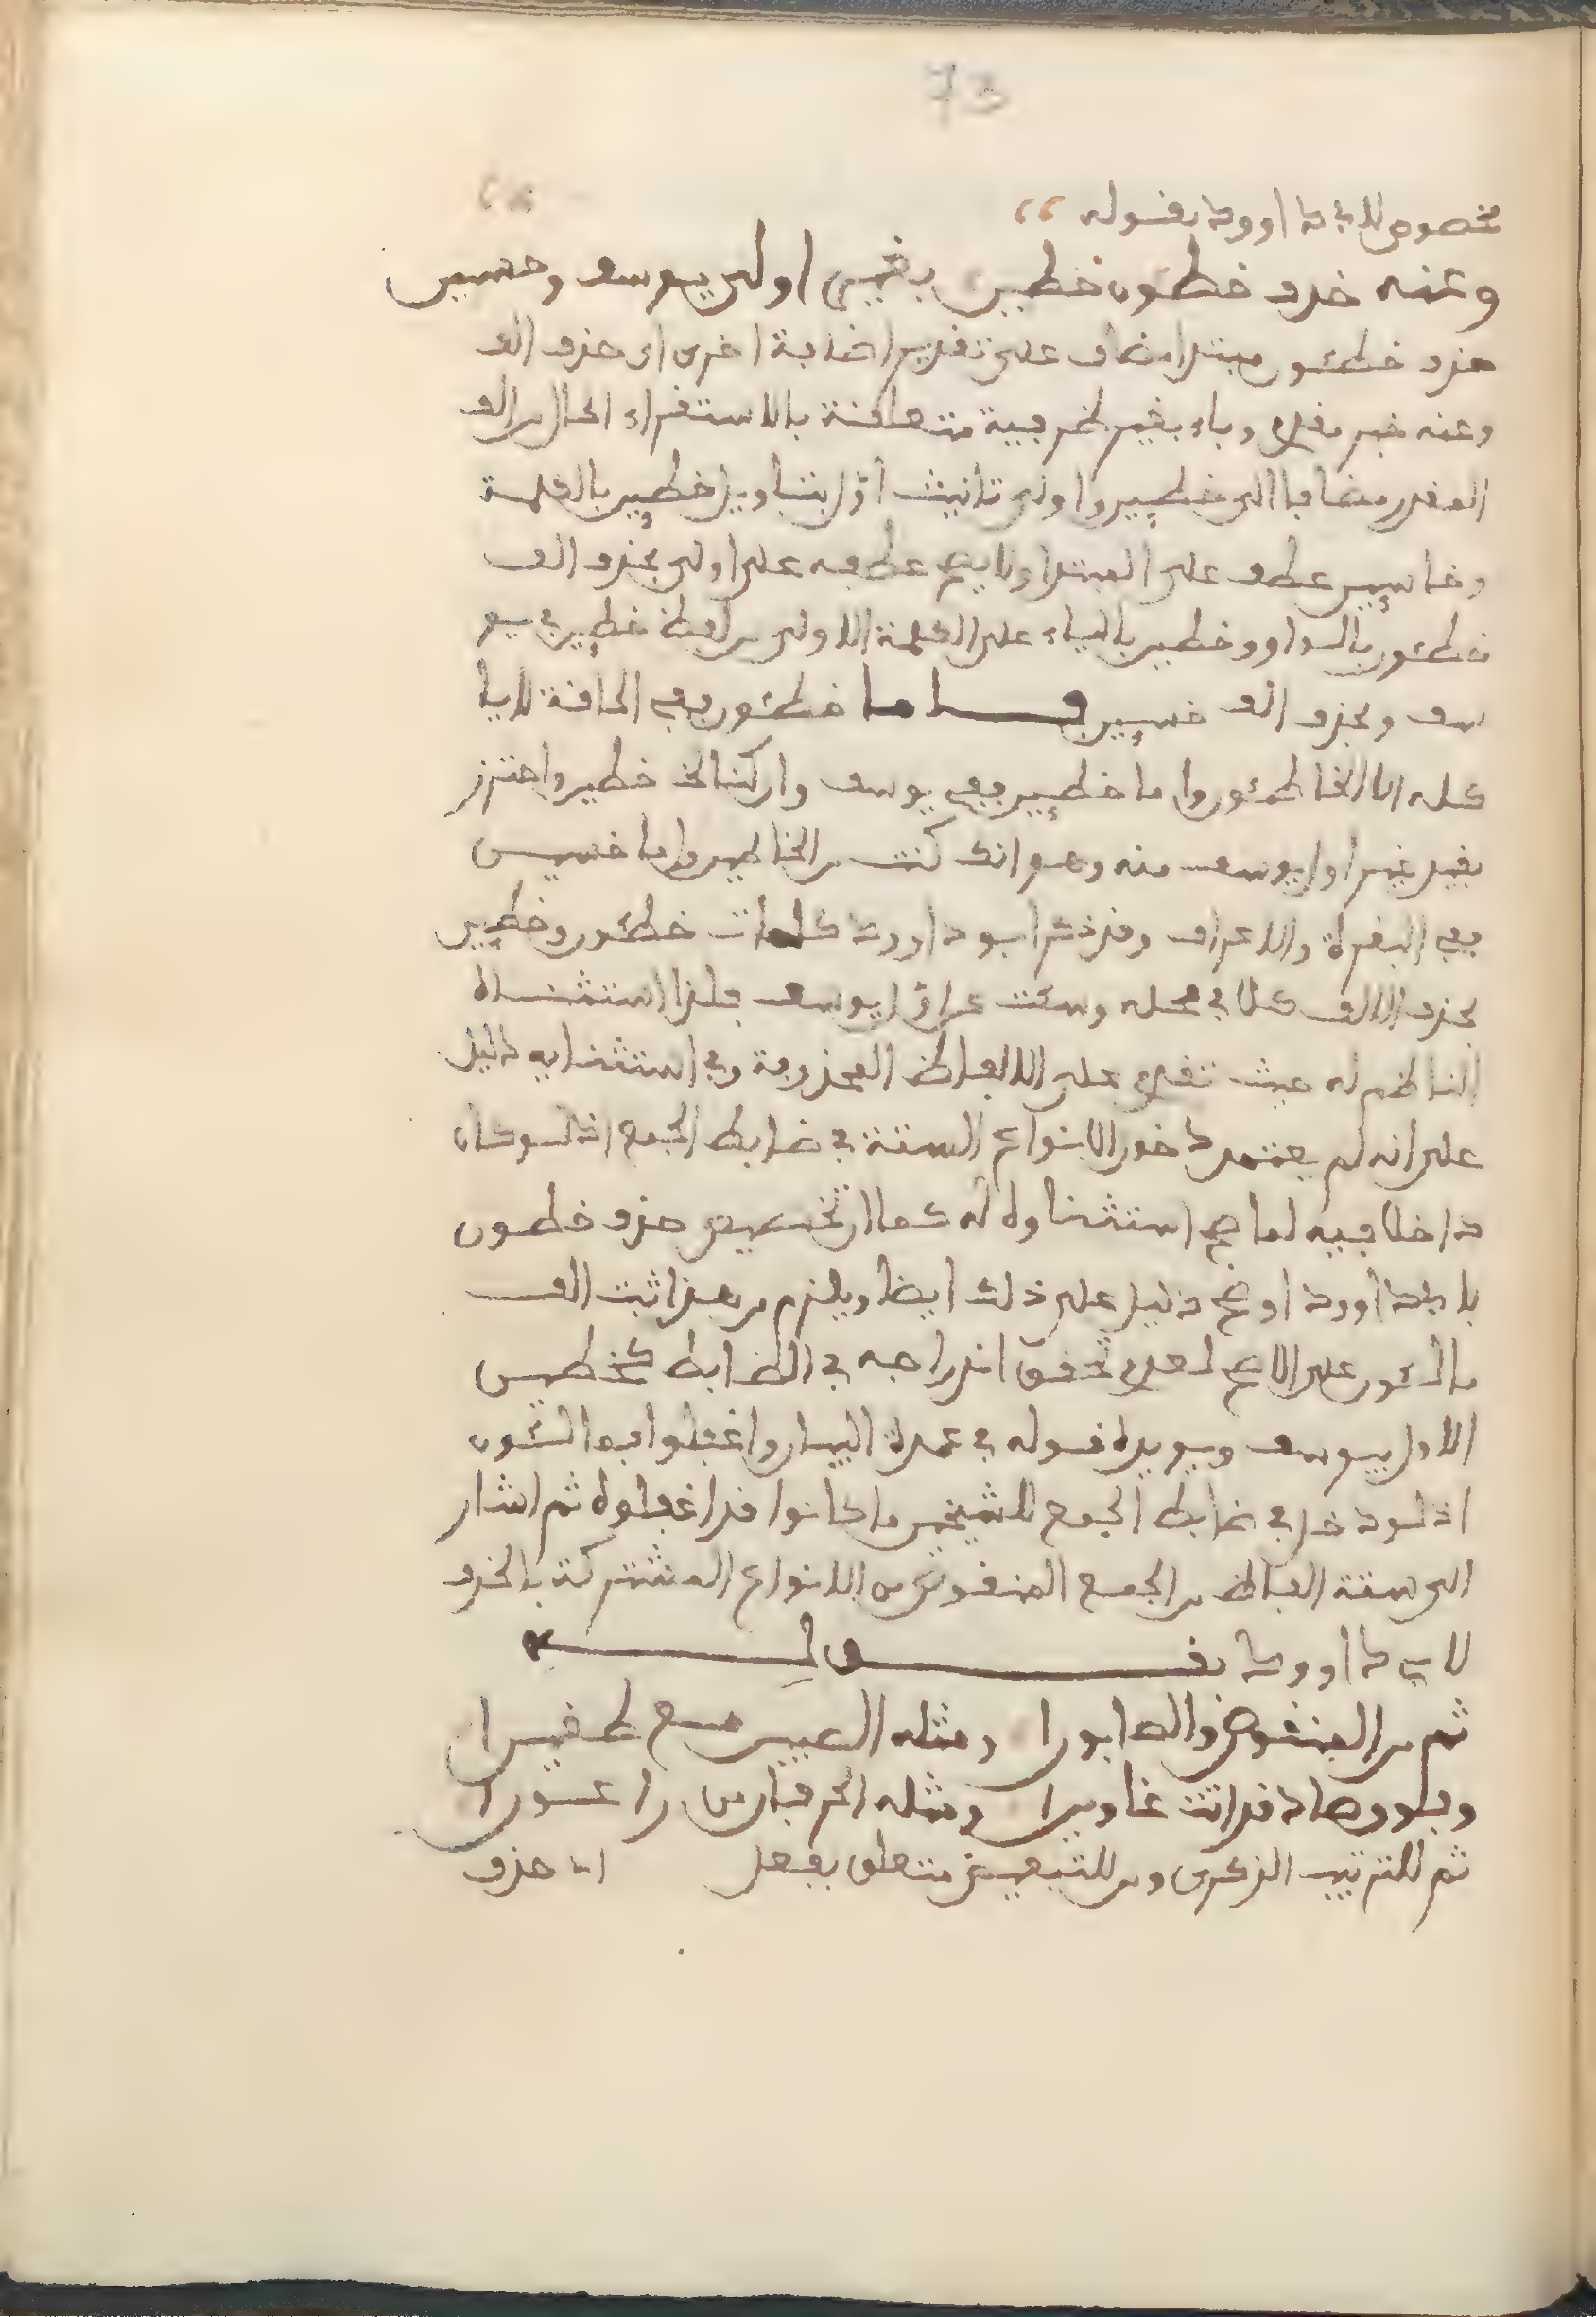 73
مخصوص لابي داوود بقوله
وعنه حذف خطون خطين بغير اولى يوسف وخسين
حذف خطئون مبتدا مضاف على تقدير اضافة اخرى اي حذف الف
وعنه خبر مقدم وباء بغير ظرفية متعلقة بالاستقرار الحال من الف
المقدر مضافا الى خطيين واولى تانيث اول بتاويل خطيين بالكلمة
وخاسيين عطف على المبتدا ولا يصح عطفه على اولى بحذف الف
خطئون بالواو وخطين بالياء على الكلمة الاولى من لفظ خطيين في يو
سف وبحذف الف خسيين فاما خطئون ففي الحاقة لا يا
كله الا الخاطئون واما خطيين ففي يوسف وان كنا لخطين واحترز
بقيد غير اول يوسف منه وهو انك كنت من الخاطين واما خسيين
ففي البقرة والاعراف وقد ذكر ابو داوود كلمات خطئون وخطيين
بحذف الالف كلا في محله وسكت عن اول يوسف فلذا استثناه
الناظم له حيث تقدم على الالفاظ المحذوفة وفي استثنايه دليل
على انه لم يعتمد دخول الانواع الستة في ضابط الجمع اذ لو كان
داخلا فيه لما صح استثناوه له كما ان تخصيص حذف خطون
بابي داوود اوضح دليل على ذلك ايضا ويلزم من هذا ثبت الف
مالئون على الاصح لعدم تحقق اندراجه في الضابط كخطين
الاول بيوسف ويويده قوله في عمدة البيان واغفلوا فمالئون
اذ لو دخل في ضابط الجمع للشيخين ما كانوا قد اغفلوه ثم اشار
الى ستة الفاظ من الجمع المنقوص من الانواع المشتركة بالحذف
لابي داوود بقوله
ثم من المنقوص والصابونا ومثله الصبين مع طغينا
وفوق صاد قد اتت غاوينا ومثله الحرفان من راعونا
ثم للترتيب الذكري ومن للتبعيض متعلق بفعل اي حذف